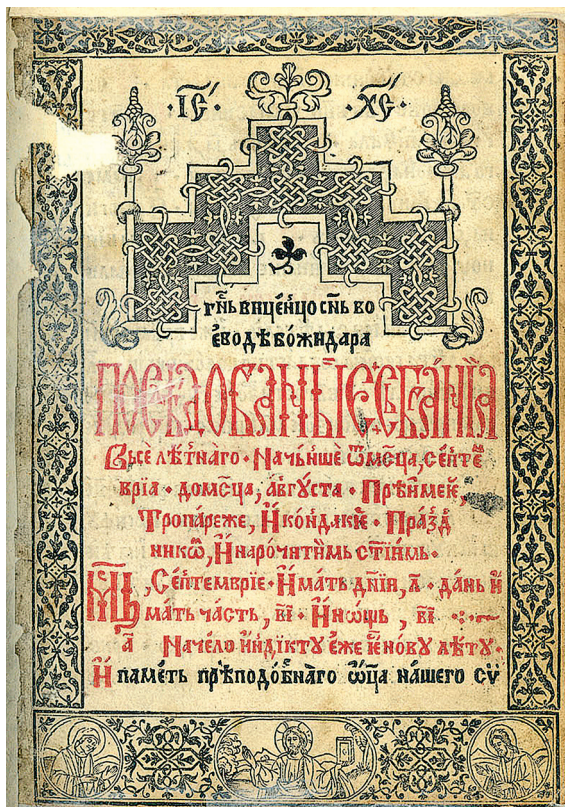 ·ІС҃· ·ХС҃·
гн҃ь виценцо сн҃ь во
еводѣ бо́жидара
ПОСЛѢДОВАНЫЙ СЬБРАНІА
Въсѐ лѣ́тнаго · Начьнше ѿмсц҃а, се́пте
врїа · до мсц҃а, а́вгуста · Прѣи́меи,
Тропа́реже, И҆ кон̾дакїе · Пра́зд
никѡ, И҆ нарочи́тимь ст҃іимь ·
Мц҃ь, Се́птемврїе · И҆мать дн҃їи, л҃ · да́нь и҆
мать ча́сть, в҃і · И҆ но́щь, в҃і
а҃ Наче́ло и҆ндїкту е́же іе́ но́ву лѣ́ту ·
И҆ паме́ть прѣподо́бнаго ѿц҃а на́шего сѵ